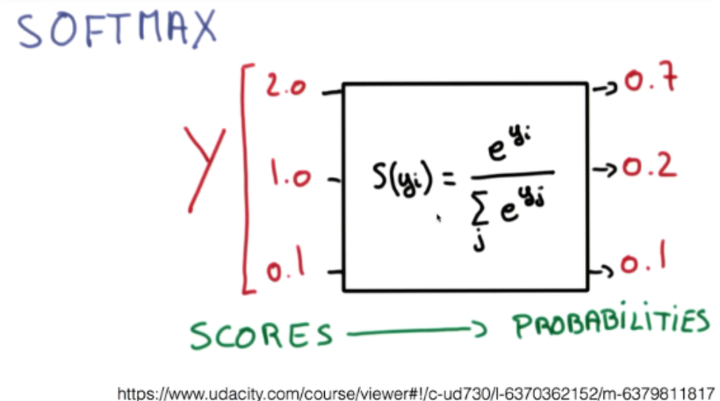 SOFTMAX
2.0 → 0.7
Y 1.0 S(yi) = e^yi / Σj e^yj → 0.2
0.1 → 0.1
SCORES → PROBABILITIES
https://www.udacity.com/course/viewer#!/c-ud730/l-6370362152/m-6379811817